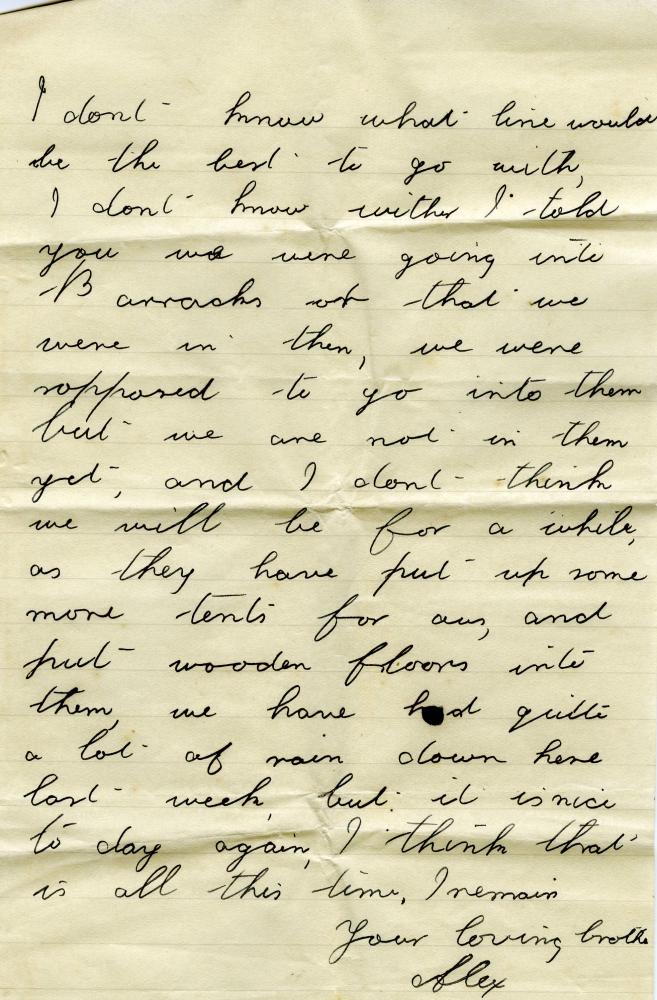 I dont know what line would
be the best to go with,
I dont know wither I told
you we were going into
Barracks or that we
were in then, we were
sopposed to go into them
but we are not in them
yet, and I dont think
we will be for a while,
as they have put up some
more tents for aus, and
put wooden floors into
them, we have had quite
a lot of rain down here
last week, but it is nice
to day again, I think that
is all this time, I remain
Your loving brothe
Alex